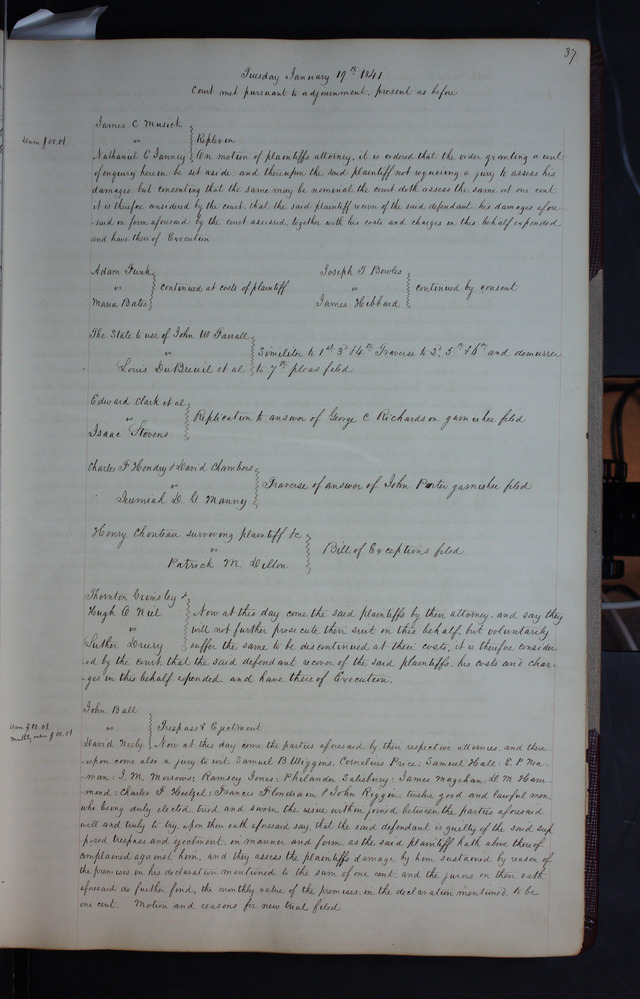 37
Tuesday January 19th 1841
Court met pursuant to adjournment, present as before
James C Musick
vs
Replevin
Dam $00.01
Nathaniel E Janney On motion of plaintiffs attorney, it is ordered that the order granting a writ
of enquiry herein be set aside, and thereupon the said plaintiff not requiring a jury to assess his
damages, but consenting that the same may be nominal the court doth assess the same at one cent
it is therefore considered by the court, that the said plaintiff recover of the said defendant his damages afore-
said in form aforesaid by the court assessed, together with his costs and charges in this behalf expended
and have thereof Execution
Adam Funk
vs
Maria Bates
continued at costs of plaintiff
Joseph T Bowles
vs
James Hibbard
continued by consent
The State to use of John W Farrall
vs
Louis DuBreuil et al
Similiter to 1st 3d & 4th Traverse to 2d, 5th & 6th and demurrer
to 7th pleas filed
Edward Clark et al
vs
Isaac Stevens
Replication to answer of George C Richardson garnishee filed
Charles F Hendry & David Chambers
vs
Jeremiah D G Manny
Traverse of answer of John Porter garnishee filed
Henry Chouteau surviving plaintiff &c
vs
Patrick M. Dillon
Bill of Exceptions filed
Thornton Grimsley &
Hugh O Neil
vs
Luther Drury
Now at this day come the said plaintiffs by their attorney, and say they
will not further prosecute their suit in this behalf, but voluntarily
suffer the same to be discontinued at their costs, it is therefore consider-
ed by the court, that the said defendant recover of the said plaintiffs, his costs and char-
ges in this behalf expended and have thereof Execution.
John Ball
vs
Trespass & Ejectment
Dam $00.01
monthly value $00.01
David Neely Now at this day come the parties aforesaid by their respective attornies, and there
upon come also a jury to wit, Samuel B Wiggins, Cornelius Price; Samuel Hall; E. P. Nea-
man; J. M. Morrows; Ramsey Jones; Philander Salisbury; James Magehan; D. M. Ham-
mond; Charles F Hretzel; Francis Flendrin & John Riggin twelve good and lawful men
who being duly elected, tried and sworn the issue within joined between the parties aforesaid
well and truly to try, upon their oath aforesaid say, that the said defendant is guilty of the said sup
posed trespass and ejectment, in manner and form, as the said plaintiff hath above thereof
complained against him, and they assess the plaintiffs damage by him sustained by reason of
the premises in his declaration mentioned to the sum of one cent, and the jurors on their oath
aforesaid do further find, the monthly value of the premises, in the declaration mentioned, to be
one cent. Motion and reasons for new trial filed